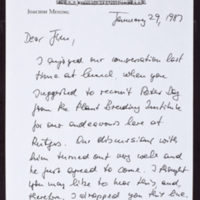 JOACHIM MESSING
January 29, 1987
Dear Jim,
I enjoyed our conversation last
time at lunch when you
suggested to recruit Peter Day
from the Plant Breeding Institute
for our endeavors here at
Rutgers. Our discussions with
him turned out very well and
he just agreed to come. I thought
you may like to hear this and,
therefore, I dropped you this line